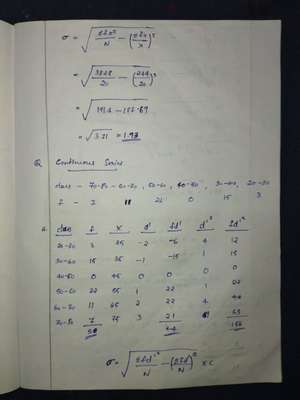 σ = √(Σfx²/N − (Σfx/N)²)
= √(3828/20 − (274/20)²)
= √(191.4 − 187.69)
= √3.71 = 1.93
Q Continuous Series
class - 70-80 - 60-70, 50-60, 40-50, 30-40, 20-30
f - 7 11 22 0 15 3
class f x d' fd' d'² fd'²
20-30 3 25 -2 -6 4 12
30-40 15 35 -1 -15 1 15
40-50 0 45 0 0 0 0
50-60 22 55 1 22 1 22
60-70 11 65 2 22 4 44
70-80 7 75 3 21 9 63
58 44 156
σ = √(Σfd'²/N − (Σfd'/N)²) × C